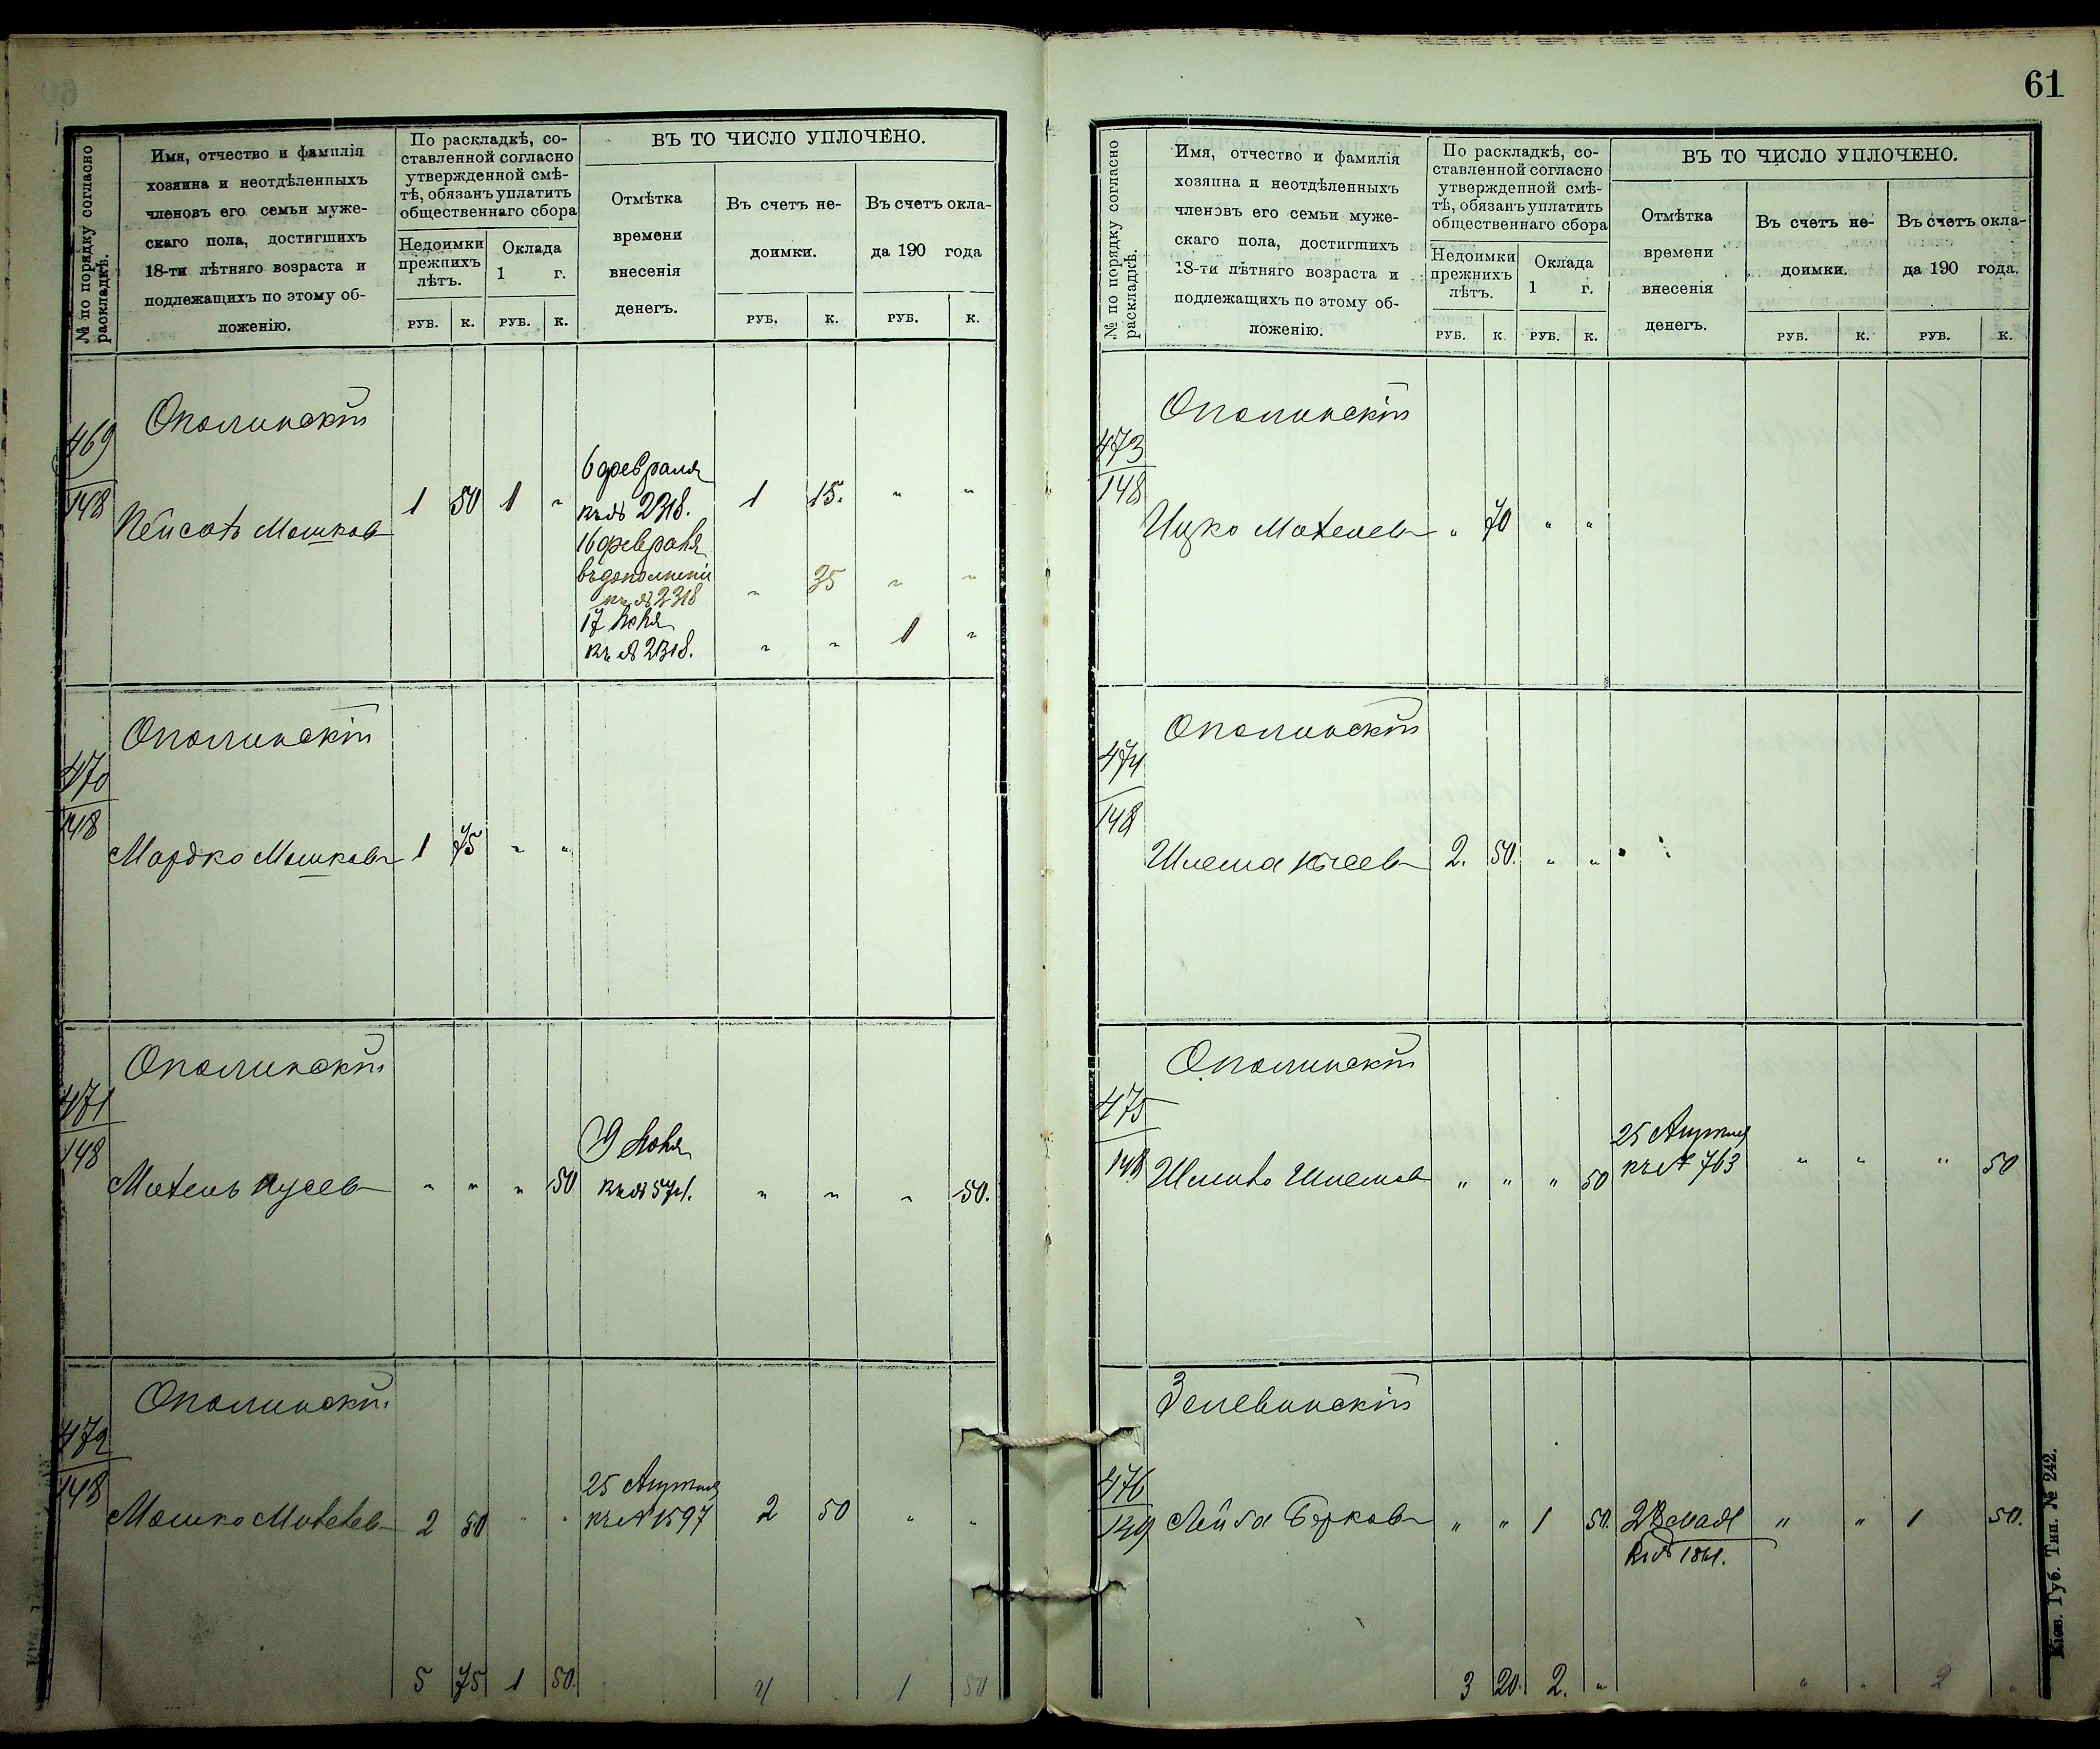 № по порядку согласно
раскладкѣ.
Имя, отчество и фамилія
хозяина и неотдѣленныхъ
членовъ его семьи муже-
скаго пола, достигшихъ
18-ти лѣтняго возраста и
подлежащихъ по этому об-
ложенію.
По раскладкѣ, со-
ставленной согласно
утвержденной смѣ-
тѣ, обязанъ уплатить
общественнаго сбора
Недоимки
прежнихъ
лѣтъ.
Оклада
1 г.
РУБ. К. РУБ. К.
ВЪ ТО ЧИСЛО УПЛОЧЕНО.
Отмѣтка
времени
внесенія
денегъ.
Въ счетъ не-
доимки.
РУБ. К.
Въ счетъ окла-
да 190 года
РУБ. К.
469
148
Ополинскій
Пейсахъ Мошковъ 1 50 1 "
6 февраля
къ № 2318. 1 15. " "
16 февраля
въ дополненіи
къ № 2318 " 35 " "
17 Іюня
къ № 2318. " " 1 "
470
148
Ополинскій
Мордко Мошковъ 1 75 " "
471
148
Ополинскій
Мотель " " " 50
9 Іюня
къ № 571. " " " 50.
472
148
Ополинскій
Мошко Мотелев 2 50 " "
25 Апрѣля
къ № 1597 2 50 " "
5 75 1 50. 4 . 1 50
61
№ по порядку согласно
раскладкѣ.
Имя, отчество и фамилія
хозяина и неотдѣленныхъ
членовъ его семьи муже-
скаго пола, достигшихъ
18-ти лѣтняго возраста и
подлежащихъ по этому об-
ложенію.
По раскладкѣ, со-
ставленной согласно
утвержденной смѣ-
тѣ, обязанъ уплатить
общественнаго сбора
Недоимки
прежнихъ
лѣтъ.
Оклада
1 г.
РУБ. К. РУБ. К.
ВЪ ТО ЧИСЛО УПЛОЧЕНО.
Отмѣтка
времени
внесенія
денегъ.
Въ счетъ не-
доимки.
РУБ. К.
Въ счетъ окла-
да 190 года.
РУБ. К.
473
148
Ополинскій
Ицко Мотелевъ " 70 " "
474
148
Ополинскій
Шлема 2. 50. " "
475
148
Ополинскій
Шлемовъ " " " 50
25 Апрѣля
къ № 763 " " " 50
476
149
Зелевинскій
Лейба Берковъ " " 1 50.
28 мая
къ № 1861. " " 1 50.
3 20. 2. " " " 2 "
Кіев. Губ. Тип. № 242.